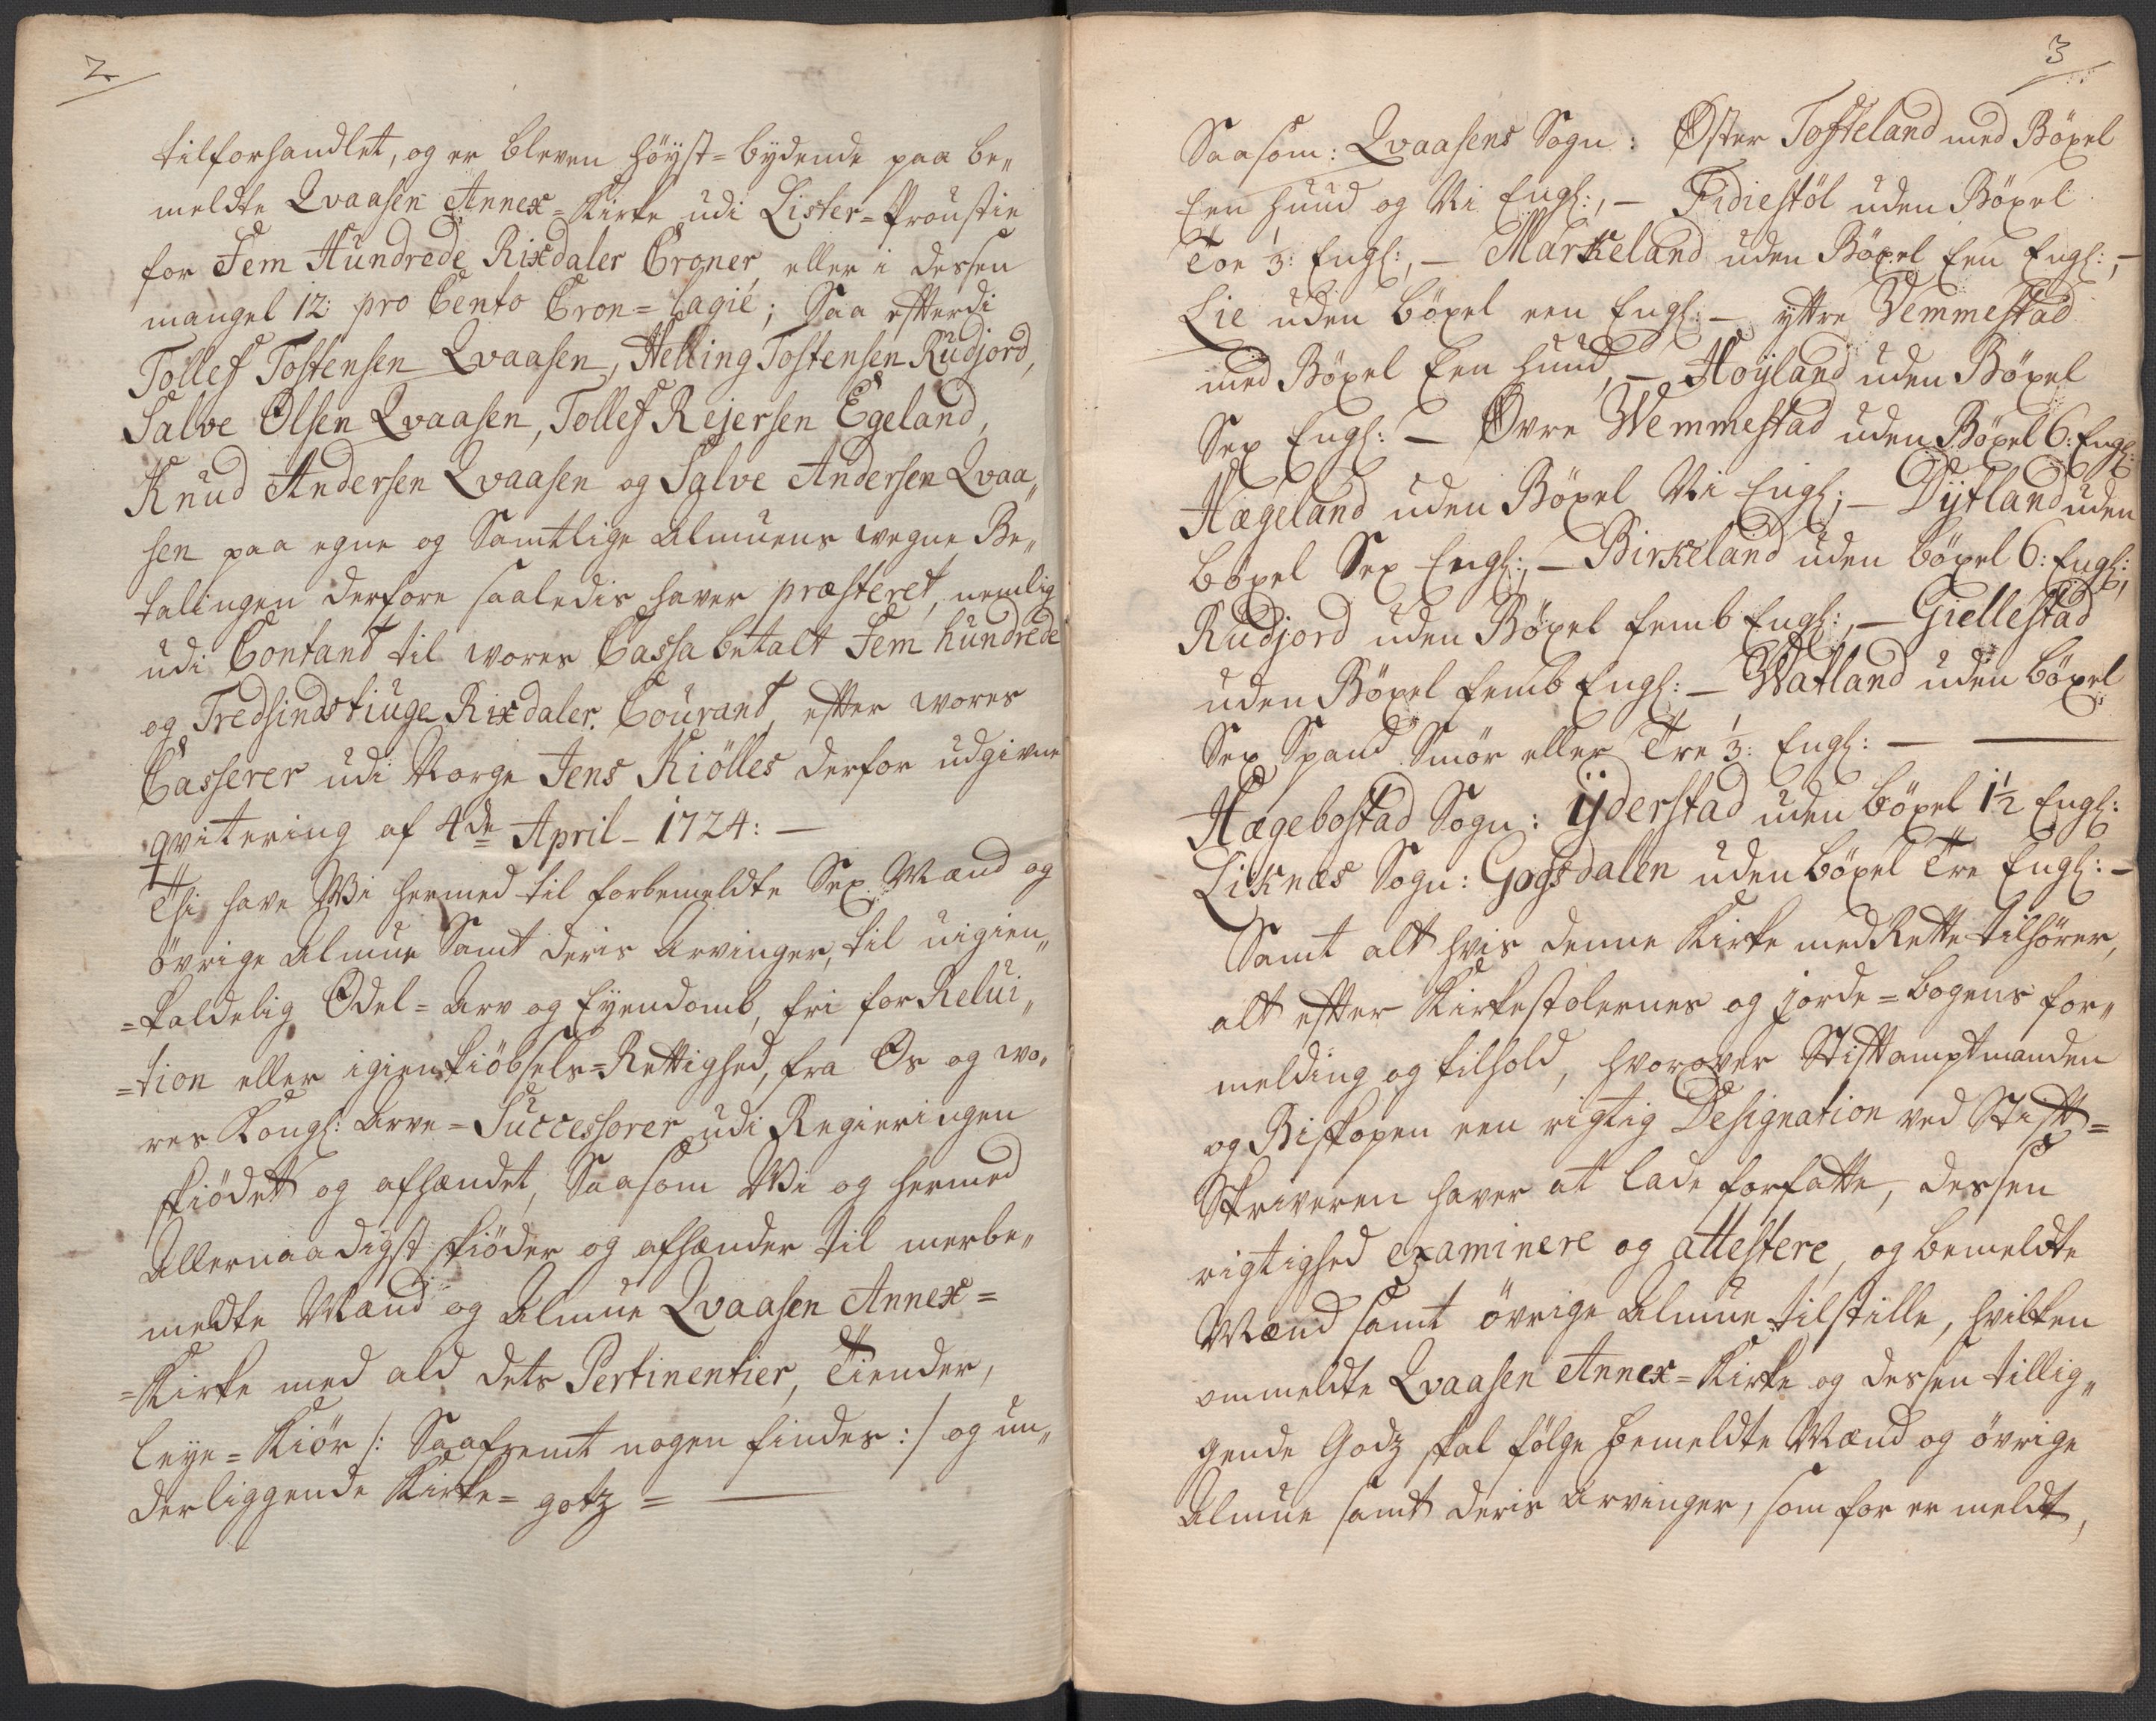 2
tilforhandlet, og er bleven höyst=bydende paa be„
meldte Qvaasen Annex=Kirke udi Lister=Proustie
for Fem Hundrede Rixdaler Croner, eller i dessen
mangel 12: pro Cento Cron=lagie; Saa efterdi
Tollef Tostensen Qvaasen, Helling Tostensen Rudjord,
Salve Olsen Qvaasen, Tollef Rejersen Egeland,
Knud Andersen Qvaasen og Salve Andersen Qvaa„
sen paa egne og Samtlige Almuens vegne Be„
talingen derfore saaledis haver præsteret, nemlig
udi Contant til vores Cassa betalt Fem hundrede
og Tredsindstiuge Rixdaler Courant, efter vores
Casserer udi Norge Jens Kiölles derfor udgivne
qvitering af 4de April-1724: —
Thi have Wi hermed til forbemeldte Sex Mænd og
övrige Almue Samt deris Arvinger, til uigien„
=kaldelig Odel=Arv og Eyendomb, fri for Relui„
=tion eller igienkiöbsels=Rettighed, fra Os og vo„
res Kongl: Arve=Successorer udi Regieringen
skiödet og afhændet, Saasom Wi og hermed
Allernaadigst skiöder og afhænder til merbe„
meldte Mænd og Almue Qvaasen Annex=
=Kirke med ald dets Pertinentier, Tiender,
Leye=Kiör /: Saafremt nogen findes :/ og un„
derliggende Kirke=gotz = —
3
Saasom: Qvaasens Sogn: Øster Tofteland med Böxel
Een huud og Ni Engl:, — Fidiestöl uden Böxel
Toe 3: Engl:, — Markeland uden Böxel Een Engl:, —
Lie uden böxel een Engl: — yttre Vemmestad
med Böxel Een huud, — Høyland uden Böxel
Sex Engl: — Øvre Wemmestad uden Böxel 6: Engl:
Hægeland uden Böxel Ni Engl; — Dytland uden
böxel Sex Engl:, — Birkeland uden böxel 6: Engl:,
Rudjord uden Böxel femb Engl:, — Giellestad
uden Böxel femb Engl: — Watland uden böxel
Sex Spand Smör eller Tre 3: Engl: — —
Hægebostad Sogn: ÿderstad uden böxel 1½ Engl:
Liknæs Sogn: Gogsdalen uden böxel Tre Engl: —
Samt alt hvis denne Kirke med Rette tilhører,
alt efter Kirkestolernes og jorde=bogens for„
melding og tilhold, hvorover Stiftamptmanden
og Biskopen een rigtig Designation ved Stift=
Skriveren haver at lade forfatte, dessen
rigtighed examinere og attestere, og bemeldte
Mænd samt övrige Almue tilstille, hvilken
ommeldte Qvaasen Annex=Kirke og dessen tillig„
gende Godz skal fölge bemeldte Mænd og övrige
Almue samt deris Arvinger, som for er meldt,